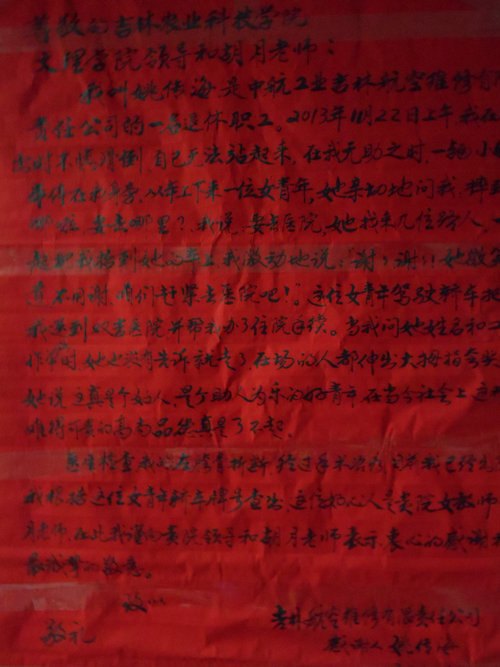 尊敬的吉林农业科技学院
文理学院领导和胡月老师：
我叫姚传海是中航工业吉林航空维修有限
责任公司的一名退休职工。2013年11月22日上午我在
时不慎滑倒，自己无法站起来，在我无助之时，一辆小轿
车停在我身旁，从车上下来一位女青年，她亲切地问我，摔
哪啦，要去哪里？我说，要去医院，她找来几位路人，一
起把我抬到她的车上，我激动地说：“谢谢！”她微笑
着，不用谢，咱们赶紧去医院吧！”。这位女青年驾驶轿车把
我送到医院并帮我办了住院手续。当我问她姓名和工
作时，她也没有告诉就走了，在场的人都伸出大拇指夸奖
她说这真是个好人，是个助人为乐的好青年，在当今社会上这
难得可贵的高尚品德真是了不起。
医生检查我必在经过手术治疗我已经
我根据这位女青年轿车牌号查出这位好心人是贵院女教师
月老师，在此我谨向贵院领导和胡月老师表示衷心的感谢和
最诚挚的敬意。
致
敬礼
吉林航空维修有限责任公司
感谢人姚传海